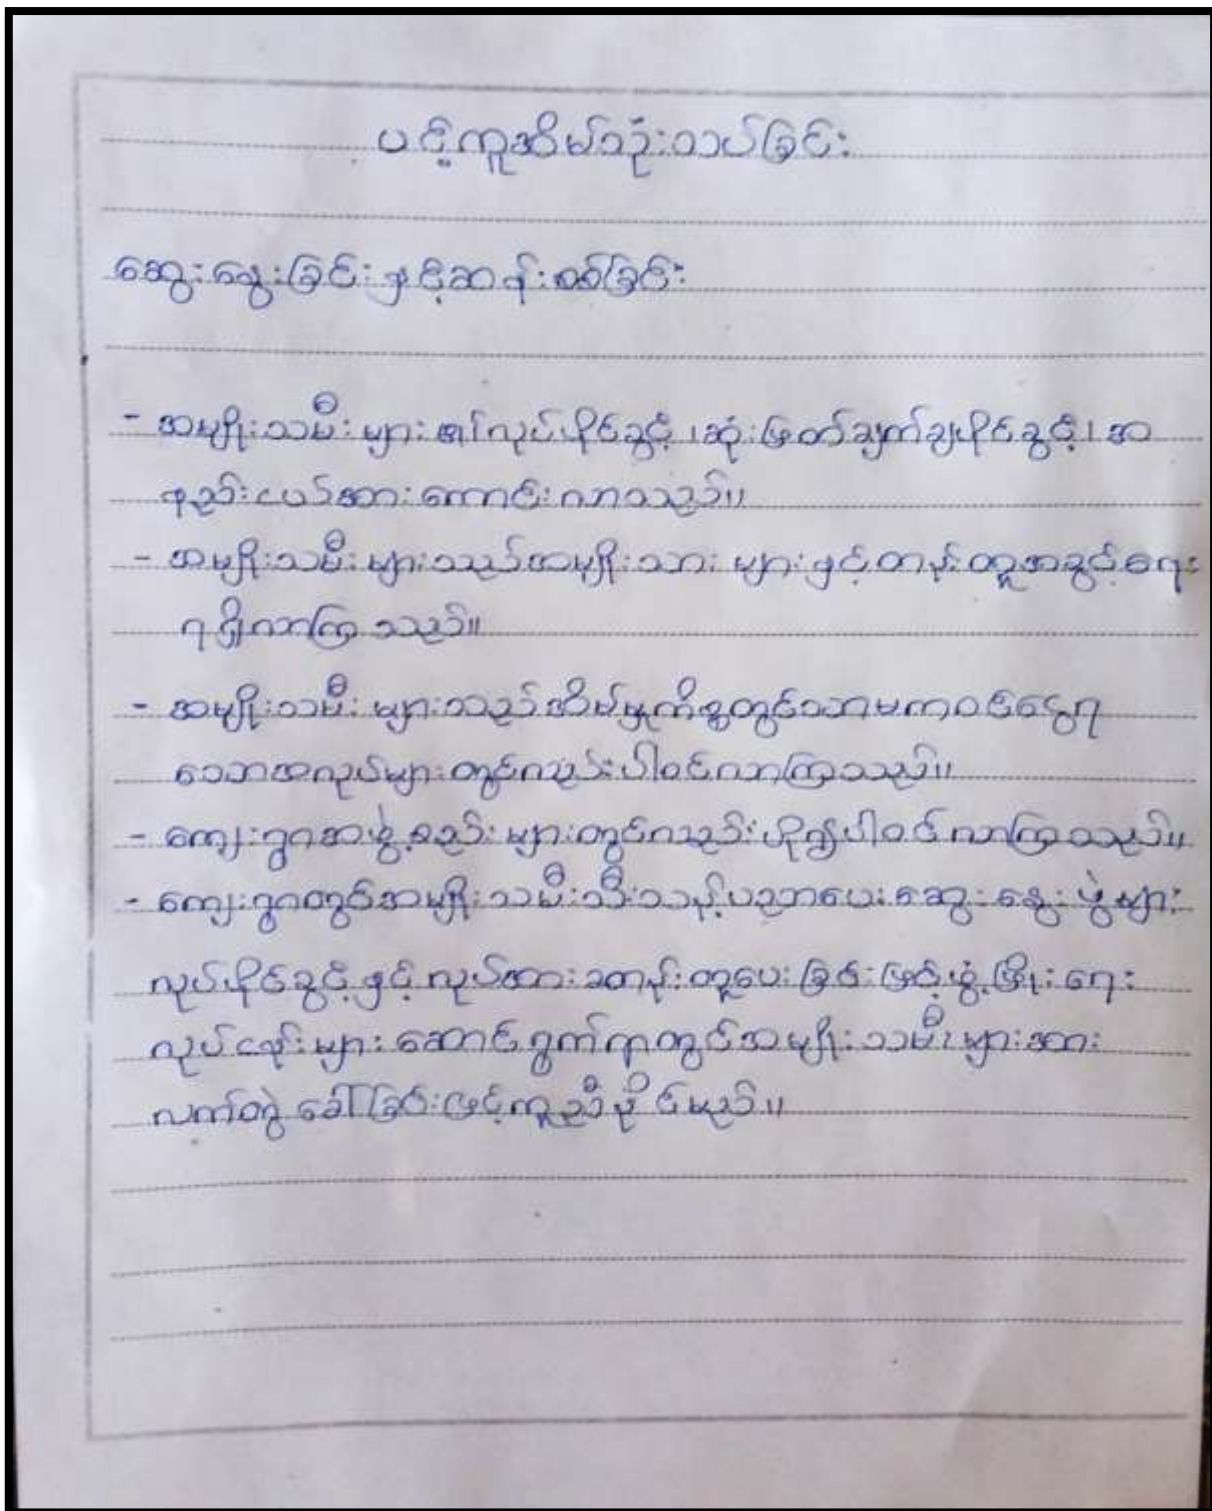 ပင့်ကူအိမ်သုံးသပ်ခြင်း
ဆွေးနွေးခြင်းနှင့်ဆန်းစစ်ခြင်း
- အမျိုးသမီးများ လုပ်ပိုင်ခွင့်၊ ဆုံးဖြတ်ချက်ချပိုင်ခွင့်၊ အ
နည်းငယ်အားကောင်းလာသည်။
- အမျိုးသမီးများသည်အမျိုးသားများနှင့်တန်းတူအခွင့်ရေး
ရရှိလာကြသည်။
- အမျိုးသမီးများသည်အိမ်မှုကိစ္စတွင်သာမကဝင်ငွေရ
သောအလုပ်များတွင်လည်းပါဝင်လာကြသည်။
- ကျေးရွာအဖွဲ့စည်းများတွင်လည်းပို၍ပါဝင်လာကြသည်။
- ကျေးရွာတွင်အမျိုးသမီးသီးသန့်ပညာပေးဆွေးနွေးပွဲများ
လုပ်ပိုင်ခွင့်နှင့်လုပ်အားခတန်းတူပေးခြင်းဖြင့်ဖွံ့ဖြိုးရေး
လုပ်ငန်းများဆောင်ရွက်ရာတွင်အမျိုးသမီးများအား
လက်တွဲခေါ်ခြင်းဖြင့်ကူညီနိုင်မည်။